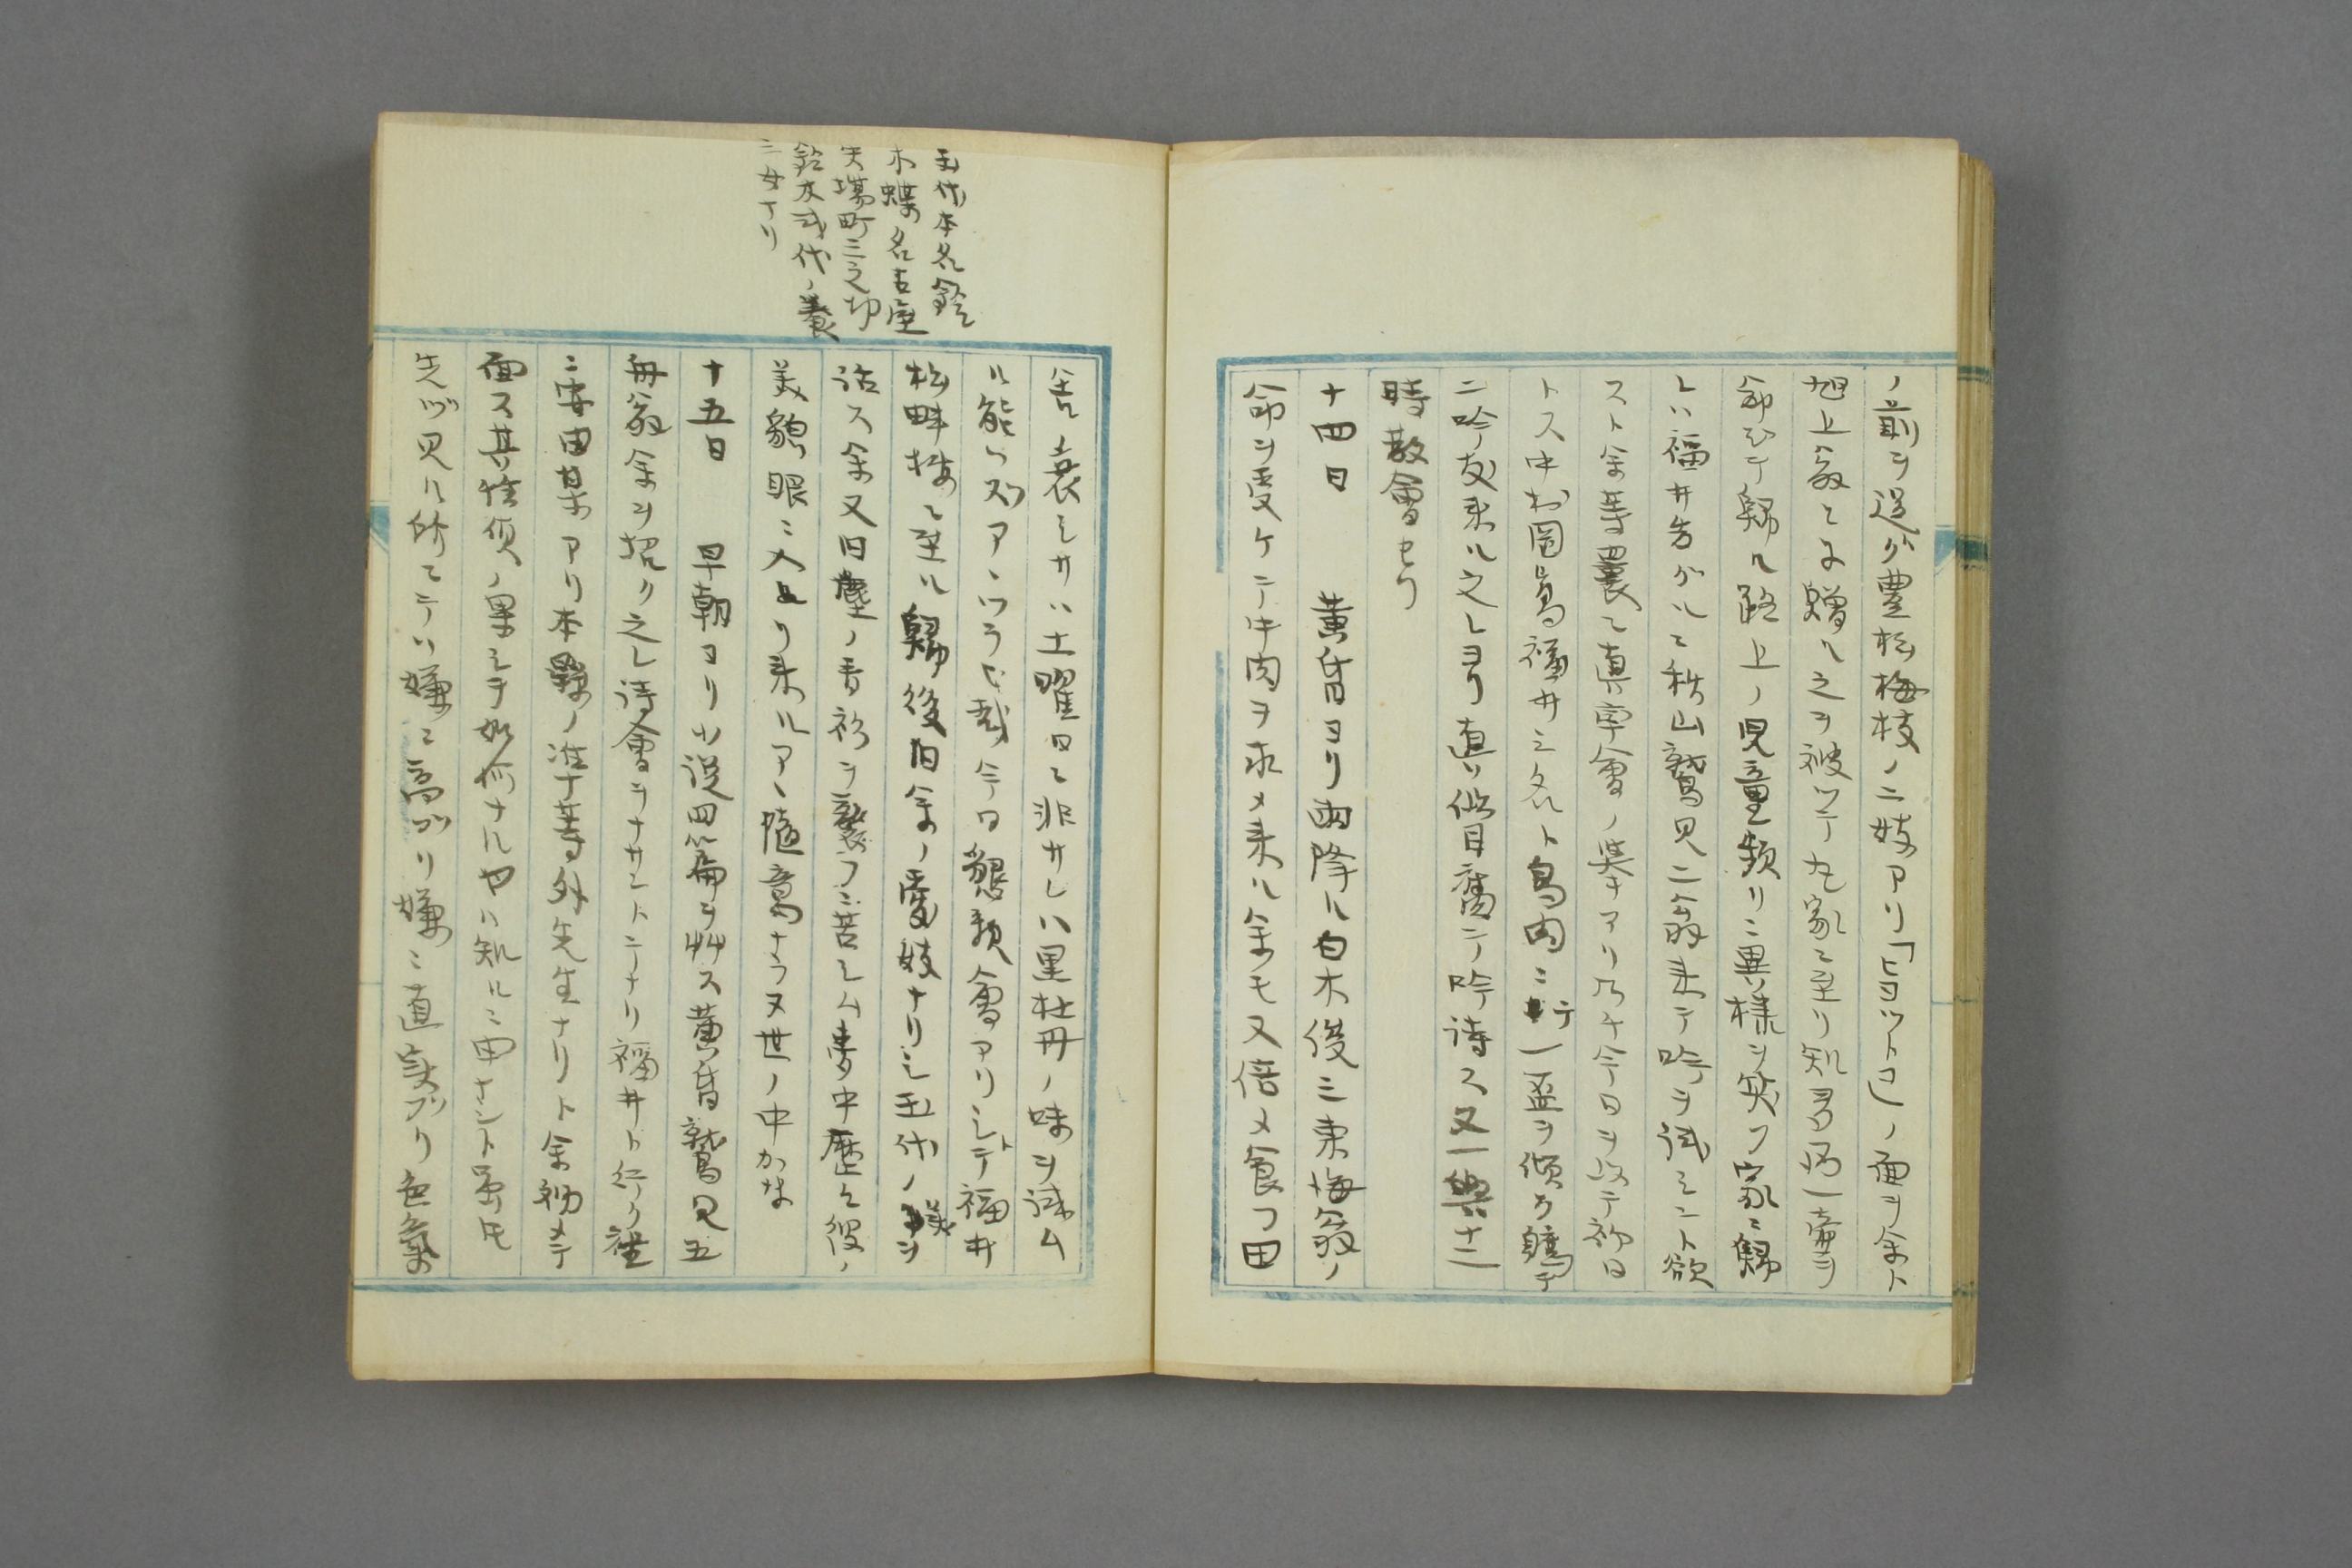 ノ前ヲ過グ豊松梅枝ノ二妓アリ「ヒヨツトコ」ノ面ヲ余ト
旭上翁ニ贈ル之ヲ被ツテ九家ニ至リ一壷ヲ
命ジテ帰ル路上ノ児童頻リニ異様ヲ笑フ家ニ帰
レハ福井告グルニ秋山鷲見二翁来テ吟ヲ試ミント欲
スト余等曩ニ真率會ノ挙アリ乃チ今日ヲ以テ初日
トス中村岡島福井三名ト鳥肉ニテ一盃ヲ傾ク
ニ吟友来ル之レヨリ真ニ眦目奮テ吟詩ス又一興十二
時散會セリ
十四日　黄昏ヨリ雨降ル白木俊三東梅翁ノ
命ヲ受ケテ牛肉ヲ求メ来ル余モ又倍メ食フ田
舎ノ哀シサハ土曜日ニ非サレハ里牡丹ノ味ヲ誡ム
ル能ハズアヽツラヒ哉今日懇親會アリシトテ福井
松畔楼ニ至ル帰後旧余ノ愛妓ナリシ玉代ノ様ヲ
話ス余又旧塵ノ香衫ヲ襲フニ苦シム夢中歴々彼ノ
美貌眼ニ入とり来ルアヽ随意ナラヌ世ノ中かな
十五日　早朝ヨリ小説四篇ヲ艸ス黄昏鷲見五
舟翁余ヲ招ク之レ詩會ヲナサントテナリ福井ト行ク座
ニ安田某アリ本縣ノ准十等外先生ナリト余初メテ
面ス其信偵ノ果シテ如何ナルヤハ知ルニ由ナシト雖モ
先ヅ見ル所ニテハ嫌ニ高ブリ嫌ニ直実ブリ色気
玉代本名鈴
木蝶名古屋
矢場町三之切
鈴木弐代ノ養
三女ナリ